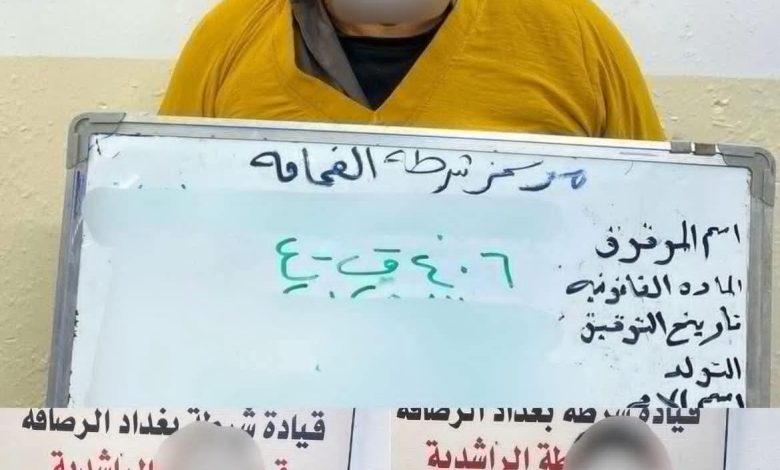 مركز شرطة الفحامة
اسم الموقوف
المادة القانونية ٤٠٦ ق.ع
تاريخ التوقيف
التولد
اسم الام
قيادة شرطة بغداد الرصافة
الراشدية
قيادة شرطة بغداد الرصافة
الراشدية